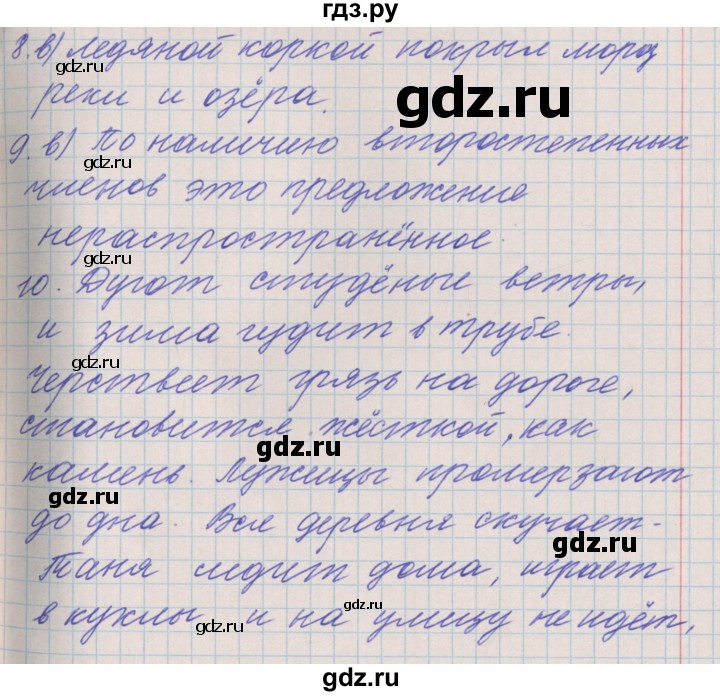 гдз.ру
8. в) Ледяной коркой покрыл мороз
gdz.ru
реки и озёра.
gdz.ru
gdz.ru
9. в) По наличию второстепенных
gdz.ru
членов это предложение
нераспространённое.
10. Дуют студёные ветры,
и зима гудит в трубе.
gdz.ru
gdz.ru
Черствеет грязь на дороге,
становится жёсткой, как
gdz.ru
камень. Лужицы промерзают
gdz.ru
до дна. Вся деревня скучает -
gdz.ru
Таня сидит дома, играет
gdz.ru
в куклы и на улицу не идёт,
gdz.ru
gdz.ru